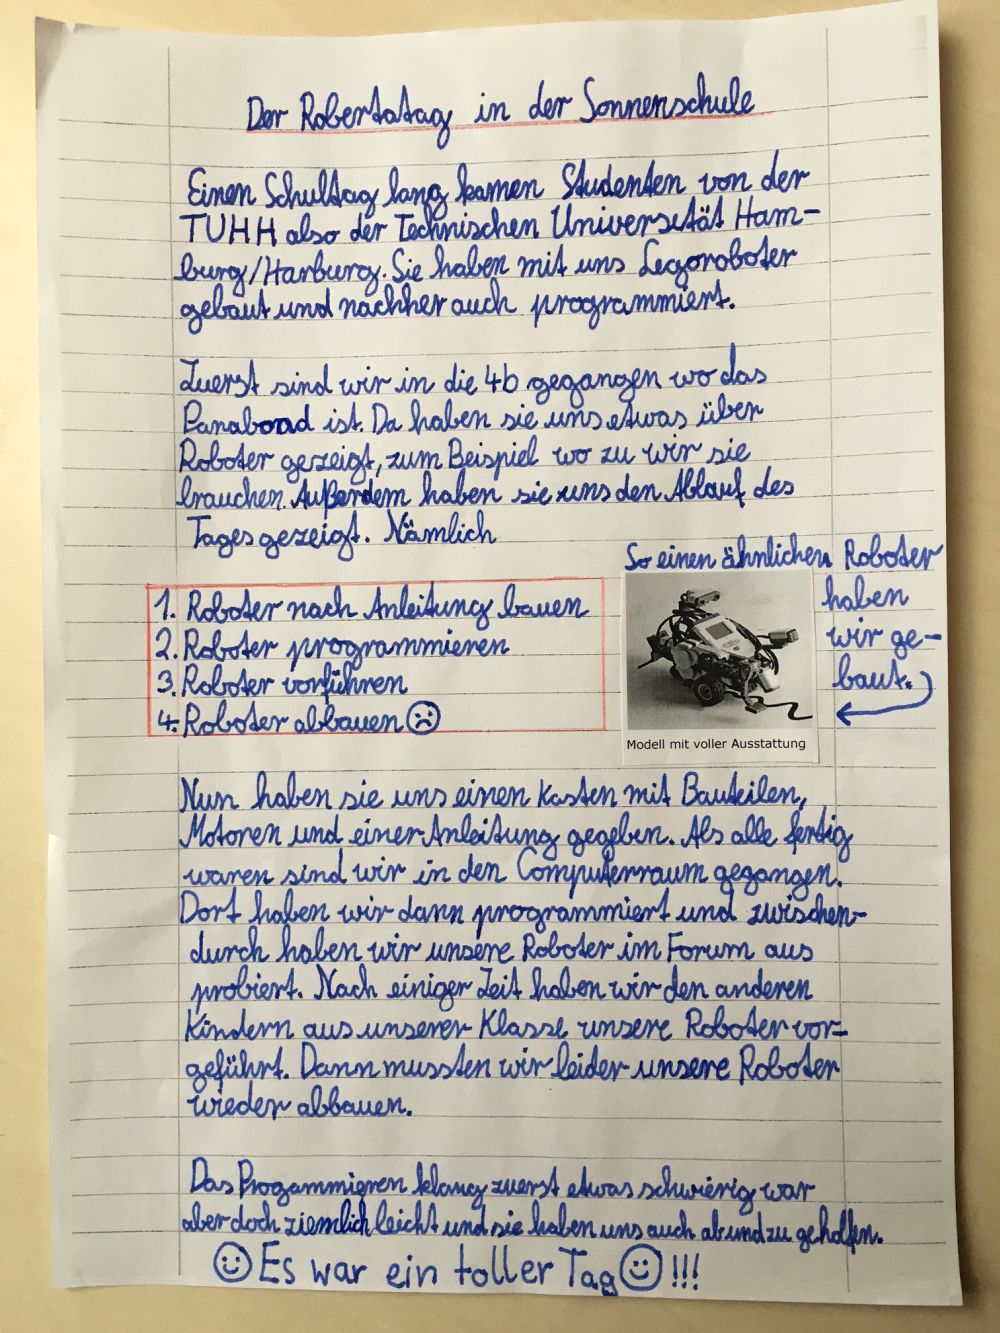 Der Robertatag in der Sonnenschule
Einen Schultag lang kamen Studenten von der
TUHH also der Technischen Universität Ham-
burg/Harburg. Sie haben mit uns Legoroboter
gebaut und nachher auch programmiert.
Zuerst sind wir in die 4b gegangen wo das
Panaboad ist. Da haben sie uns etwas über
Roboter gezeigt, zum Beispiel wo zu wir sie
brauchen. Außerdem haben sie uns den Ablauf des
Tages gezeigt. Nämlich
1. Roboter nach Anleitung bauen
2. Roboter programmieren
3. Roboter vorführen
4. Roboter abbauen ☹
So einen ähnlichen Roboter
haben
wir ge-
baut.
Modell mit voller Ausstattung
Nun haben sie uns einen Kasten mit Bauteilen,
Motoren und einer Anleitung gegeben. Als alle fertig
waren sind wir in den Computerraum gegangen.
Dort haben wir dann programmiert und zwischen-
durch haben wir unsere Roboter im Forum aus
probiert. Nach einiger Zeit haben wir den anderen
Kindern aus unserer Klasse unsere Roboter vor=
geführt. Dann mussten wir leider unsere Roboter
wieder abbauen.
Das Progammieren klang zuerst etwas schwierig war
aber doch ziemlich leicht und sie haben uns auch ab und zu geholfen.
☺ Es war ein toller Tag ☺ !!!